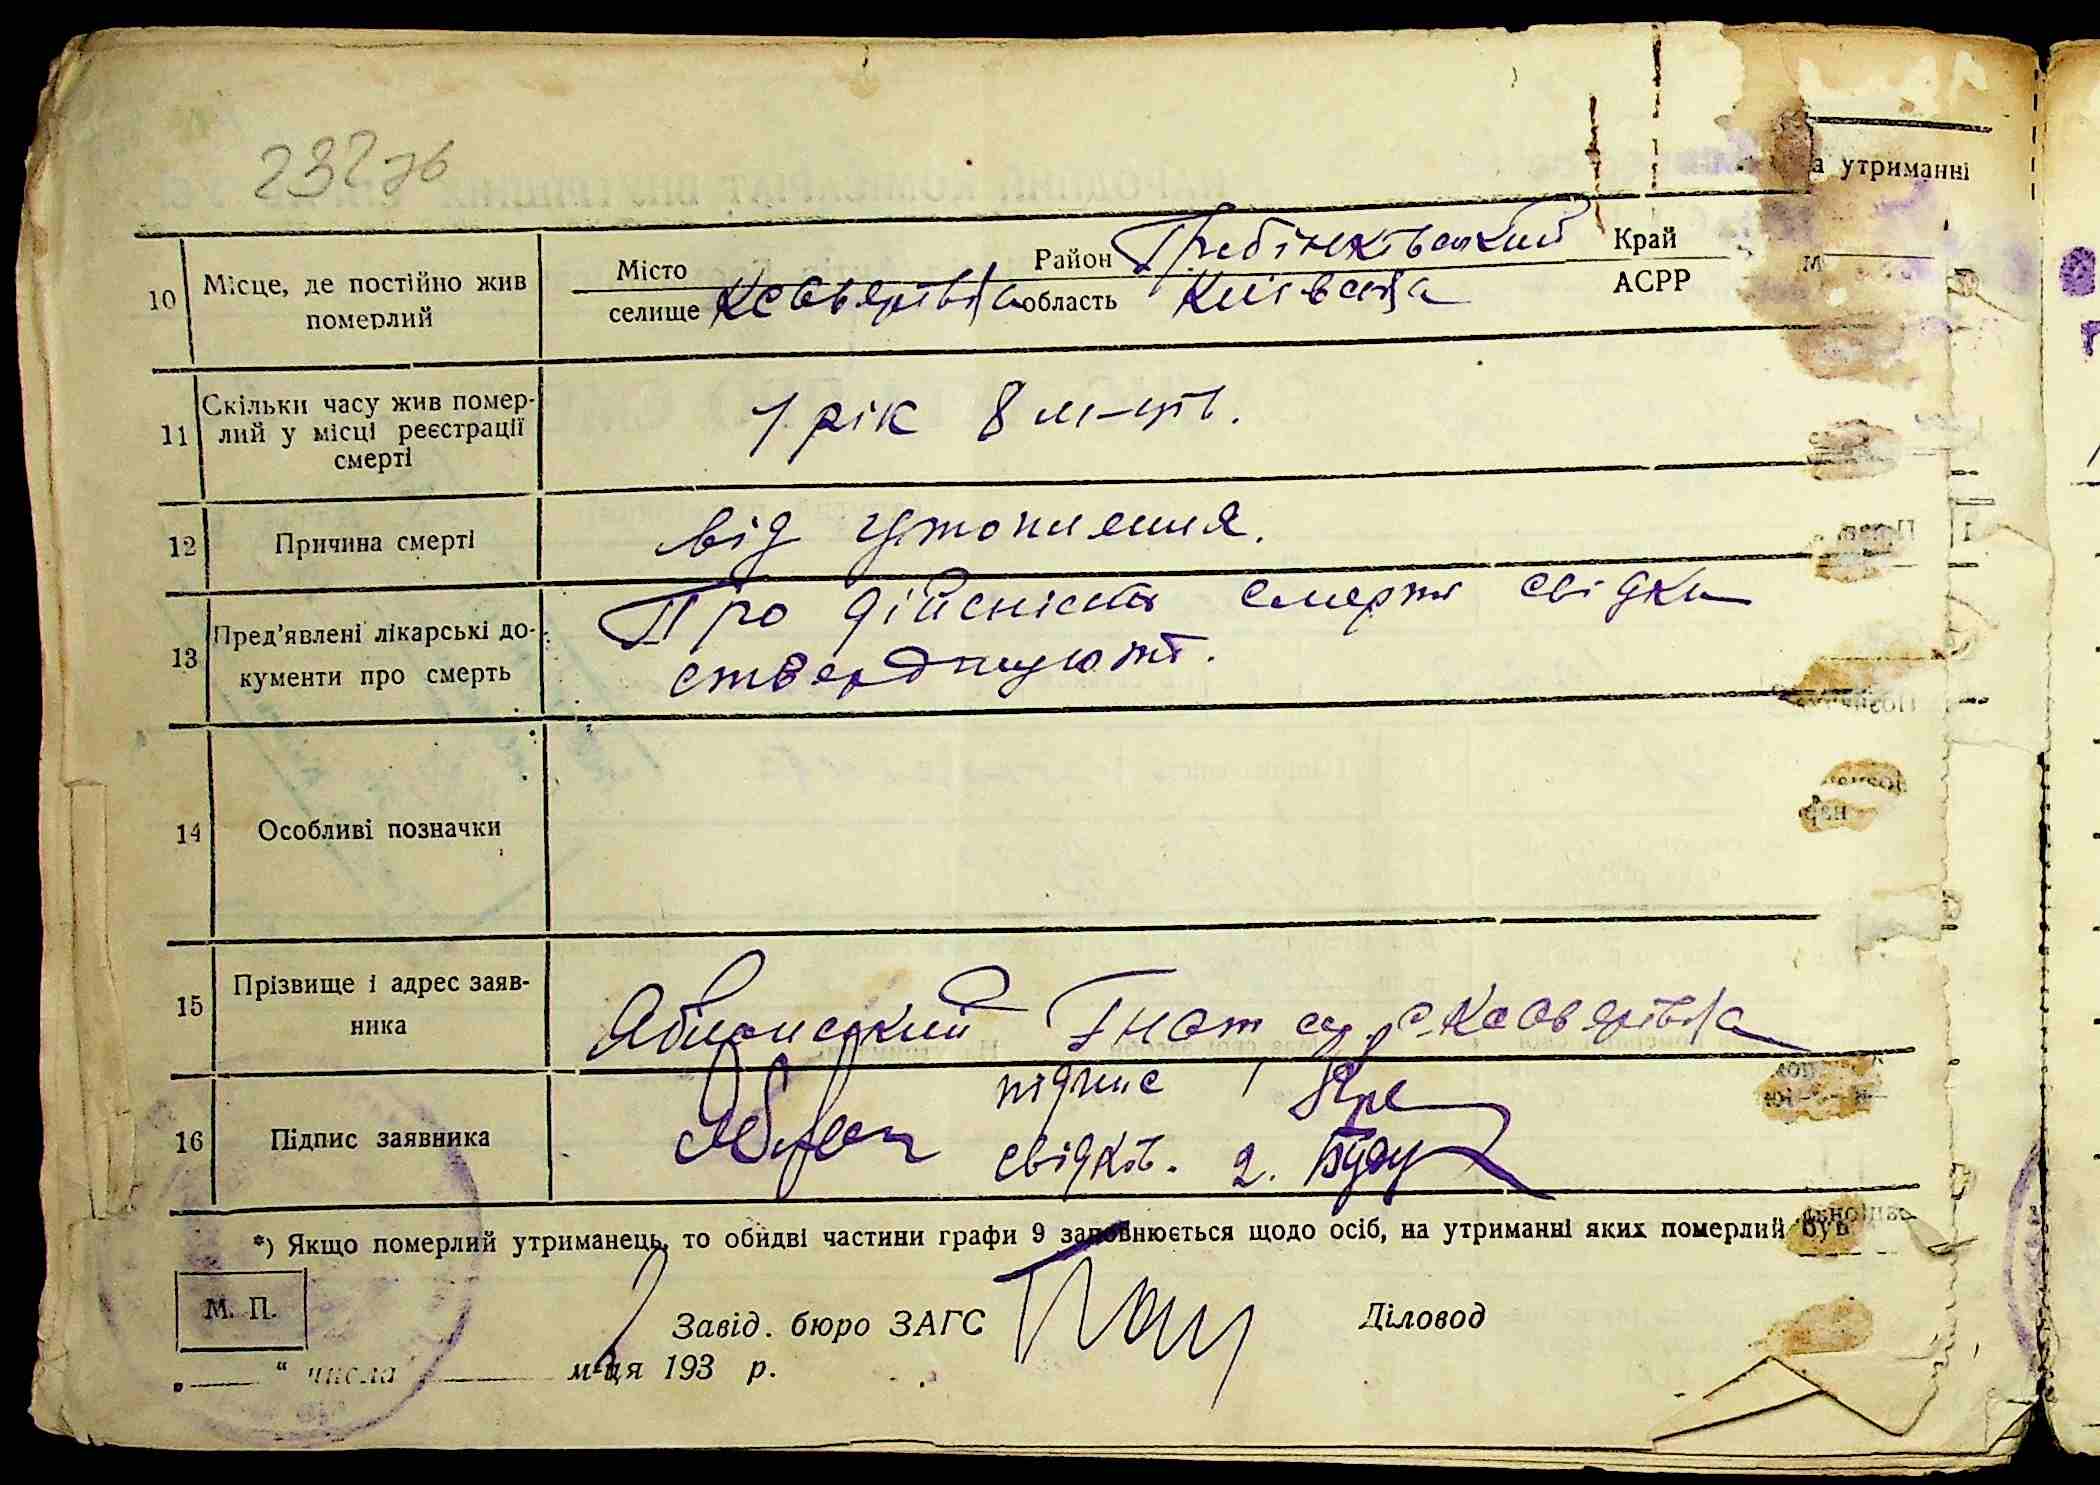 232 зв
а утриманні
10 Місце, де постійно жив померлий
Місто Район Гребінківський Край
селище Ксаверівка область Київська АСРР
11 Скільки часу жив помер-
лий у місці реєстрації
смерті
1 рік 8 м-ців.
12 Причина смерті від утоплення.
13 Пред'явлені лікарські до-
кументи про смерть
Про дійсність смерти свідки
стверджують.
14 Особливі позначки
15 Прізвище і адрес заяв-
ника
Гнат с. Ксаверівка
16 Підпис заявника
підпис 1
свідків. 2.
*) Якщо померлий утриманець, то обидві частини графи 9 заповнюється щодо осіб, на утриманні яких померлий був
М. П.
Завід. бюро ЗАГС Діловод
„ “ числа м-ця 193 р.